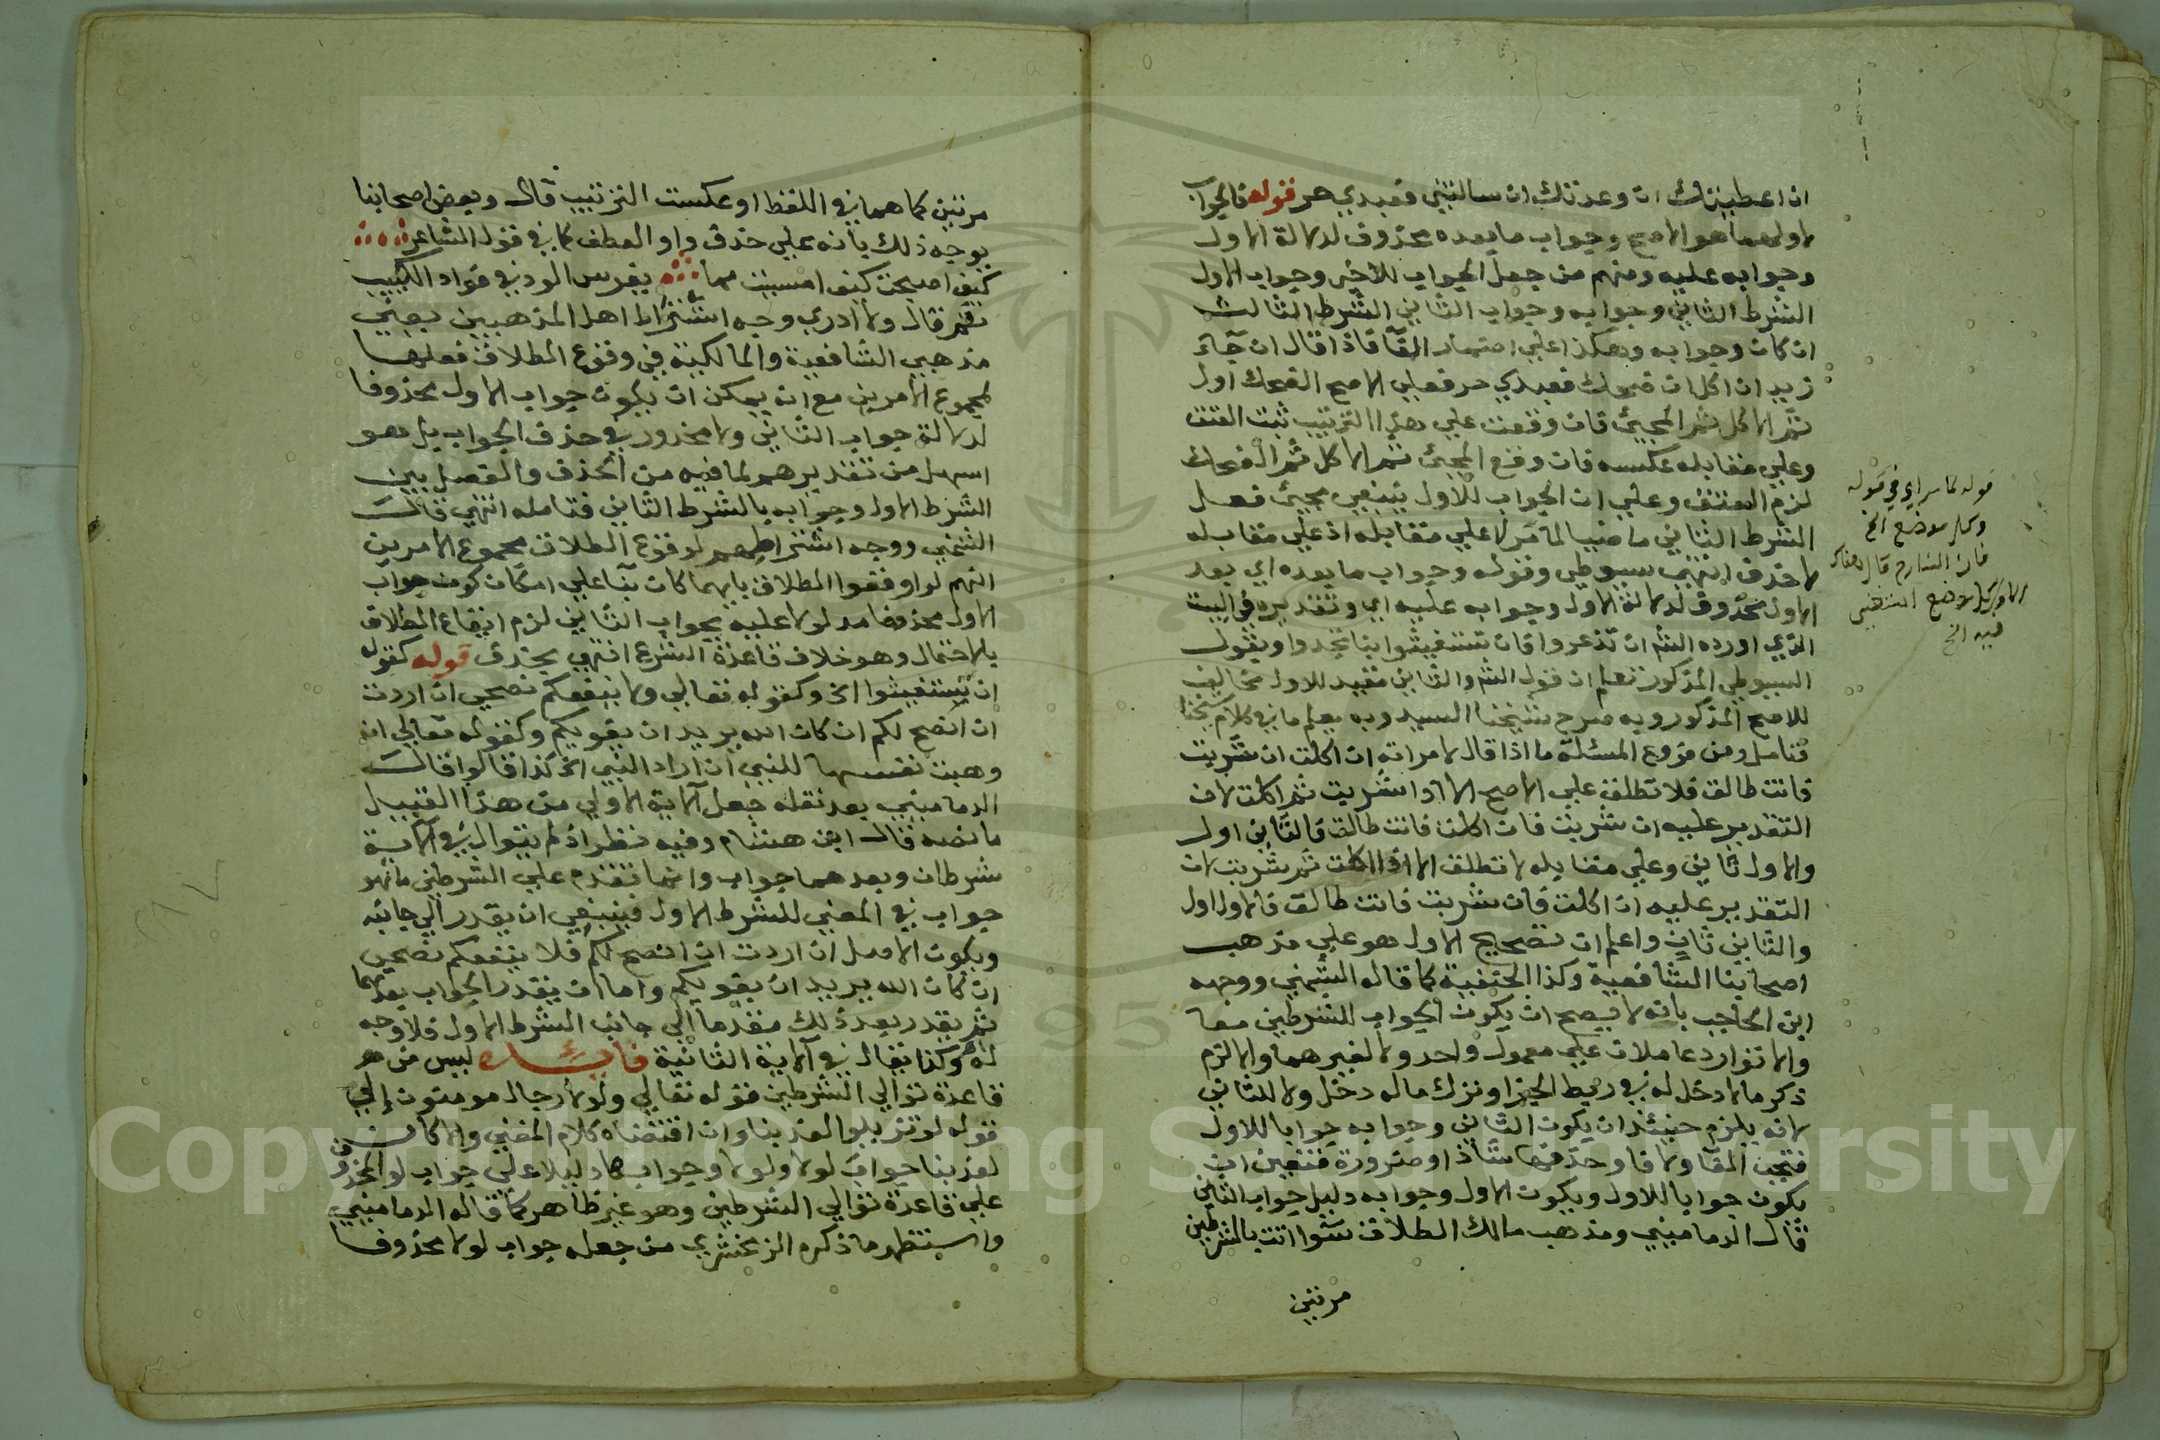 ان اعطيتك ان وعدتك ان سالتني فعبدي حر قوله فالجواب
لاولهما هو الاصح وجواب ما بعده محذوف لدلالة الاول
وجوابه عليه ومنهم من جعل الجواب للأخير وجواب الاول
الشرط الثاني وجوابه وجواب الثاني الشرط الثالث
ان كان وجوابه وهكذا علي اضمار الفآ فاذا قال ان جآء
زيد ان اكل ان ضحك فعبدي حر فعلي الاصح الضحك اول
ثم الاكل ثم المجيئ فان وقعت علي هذا الترتيب ثبت العتق
وعلي مقابله عكسه فان وقع المجيئ ثم الاكل ثم الضحك
لزم العتق وعلي ان الجواب للأول ينبغي مجيئ فعل
الشرط الثاني ماضيا لما مر لا علي مقابله اذ علي مقابله
لا حذف انتهي سيوطي وقوله وجواب ما بعده اي بعد
الاول محذوف لدلالة الاول وجوابه عليه اي وتقديره في البيت
الذي اورده الشم ان تذعروا فان تستغيثوا بنا تجدوا وبقول
السيوطي المذكور تعلم ان قول الشم والثاني مقيد للاول مخالف
للاصح المذكور وبه صرح شيخنا السيد وبه يعلم ما في كلام شيخنا
فتامل ومن فروع المسئلة ما اذا قال لامراته ان اكلت ان شربت
فانت طالق فلا تطلق علي الاصح الا اذا شربت ثم اكلت لان
التقدير عليه ان شربت فان اكلت فانت طالق فالثاني اول
والاول ثاني وعلي مقابله لا تطلق الا اذا اكلت ثم شربت لان
التقدير عليه ان اكلت فان شربت فانت طالق فالاول اول
والثاني ثان واعلم ان تصحيح الاول هو علي مذهب
اصحابنا الشافعية وكذا الحنفية كما قاله الشمني ووجهه
ابن الحاجب بانه لا يصح ان يكون الجواب للشرطين معا
والا توارد عاملان علي معمول واحد ولا لغيرهما والا لزم
ذكر ما لا دخل له في ربط الجزا وترك ما له دخل ولا للثاني
لانه يلزم حينئذ ان يكون الثاني وجوابه جوابا للاول
فتجب الفآ ولا فا وحذفها شاذ او ضرورة فتعين ان
يكون جوابا للاول ويكون الاول وجوابه دليل جواب الثاني
قال الدماميني ومذهب مالك الطلاق سوا اتت بالشرطين
مرتين
قوله لما سياتي في قوله
وكل موضع الخ
فان الشارح قال هناك
فيه الخ
مرتبين كما هما في اللفظ او عكست الترتيب قال وبعض اصحابنا
يوجه ذلك بانه علي حذف واو العطف كما في قول الشاعر
كيف اصبحت كيف امسيت مما يغرس الود في فؤاد الكئيب
ثم قال ولا أدري وجه اشتراط اهل المذهبين يعني
مذهبي الشافعية والمالكية في وقوع الطلاق فعلها
لمجموع الامرين مع انه يمكن ان يكون جواب الاول محذوفا
لدلالة جواب الثاني ولا محذور في حذف الجواب بل هو
اسهل من تقديرهم لما فيه من الحذف والفصل بين
الشرط الاول وجوابه بالشرط الثاني فتامله انتهي قال
الشمني ووجه اشتراطهم لوقوع الطلاق مجموع الامرين
انهم لو اوقعوا الطلاق بايهما كان بنآ علي امكان كون جواب
الاول محذوفا مدلولا عليه بجواب الثاني لزم ايقاع الطلاق
بالاحتمال وهو خلاف قاعدة الشرع انتهي بحذف قوله كقوله
ان تستغيثوا الخ وكقوله تعالي ولا ينفعكم نصحي ان اردت
ان انصح لكم ان كان الله يريد ان يغويكم وكقوله تعالي ان
وهبت نفسها للنبي ان اراد النبي الخ كذا قالوا قال
الدماميني بعد نقله جعل آلاية الاولي من هذا القبيل
ما نصه قال ابن هشام وفيه نظر اذ لم يتوال في الاية
شرطان وبعدهما جواب وانما تقدم علي الشرطين ما هو
جواب في المعني للشرط الاول فينبغي ان يقدر الي جانبه
ويكون الاصل ان اردت ان انصح لكم فلا ينفعكم نصحي
ان كان الله يريد ان يغويكم واما ان يقدر الجواب بعدهما
ثم يقدر بعد ذلك مقدما الي جانب الشرط الاول فلا وجه
له وكذا يقال في الاية الثانية فايدة ليس من
قاعدة توالي الشرطين قوله تعالي ولولا رجال مومنون إلي
قوله لو تزيلوا لعذبنا وان اقتضاه كلام المغني والا كان
لعذبنا جواب لولا ولولا وجوابها دليلا علي جواب لو المحذوف
علي قاعدة توالي الشرطين وهو غير ظاهر كما قاله الدماميني
واستظهر ما ذكره الزمخشري من جعله جواب لولا محذوفا
Copyright © King Saud University